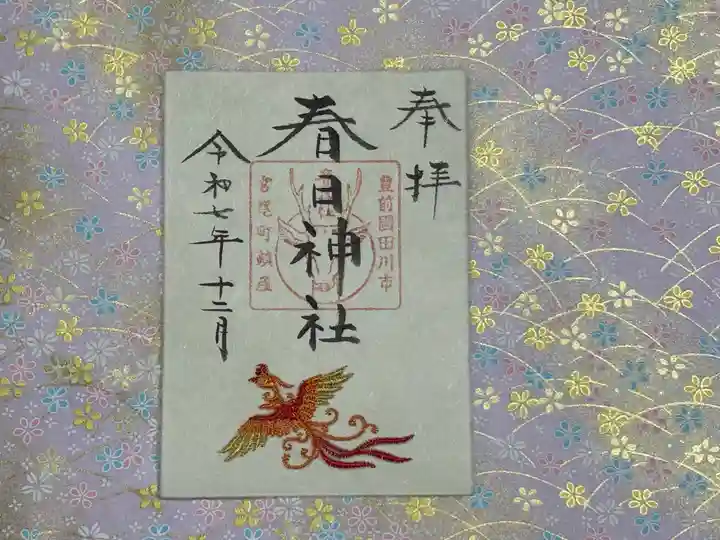 奉拝
春日神社
令和七年十二月
豊前國田川市
宮尾町鎮座